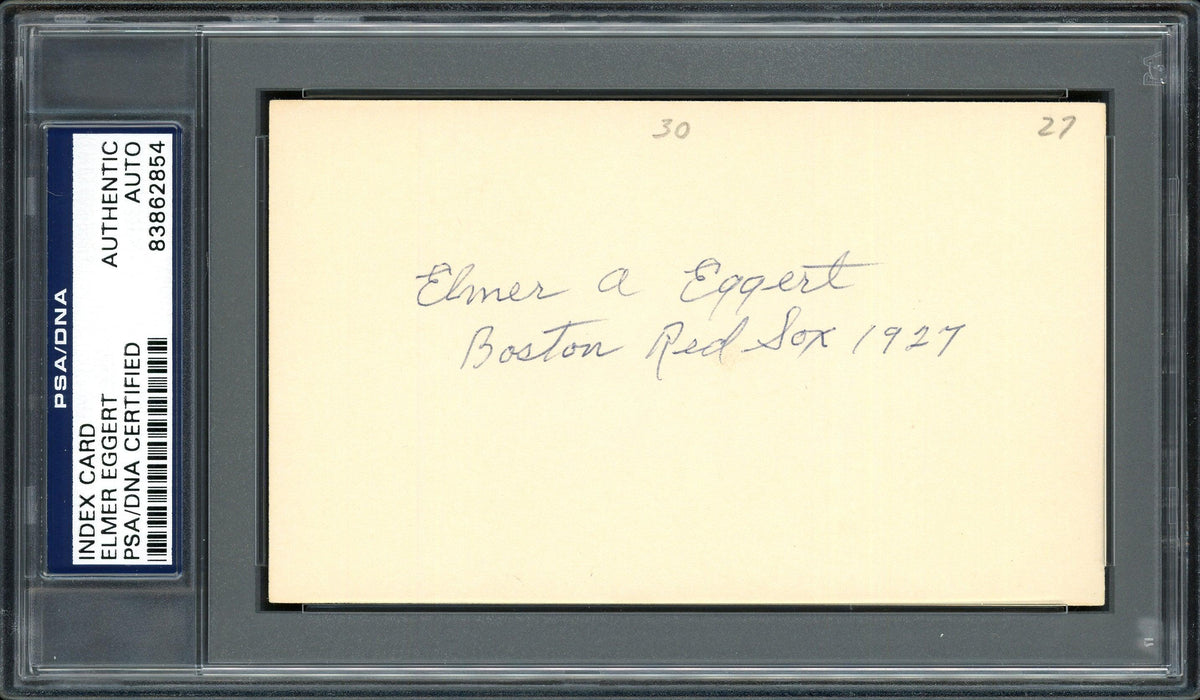 PSA/DNA
INDEX CARD
ELMER EGGERT
PSA/DNA CERTIFIED
AUTHENTIC
AUTO
83862854
30
27
Elmer A Eggert
Boston Red Sox 1927